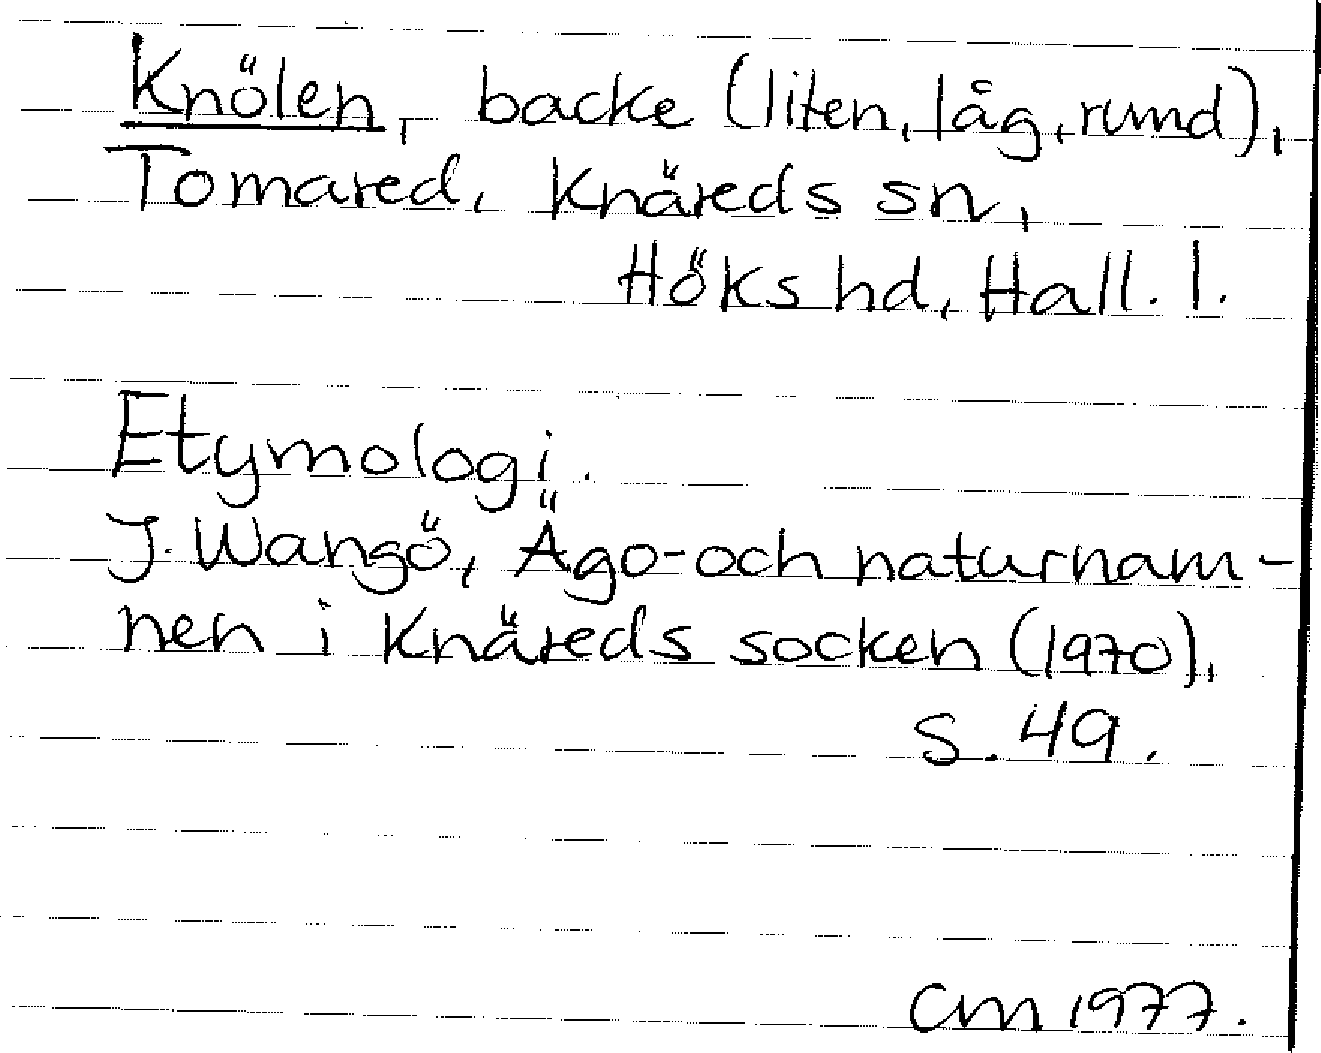 Knölen, backe (liten, låg, rund),
Tomared, Knäreds sn,
Höks hd, Hall. l.
Etymologi.
J. Wangö, Ägo- och naturnam-
nen i Knäreds socken (1970),
s. 49.
CM 1977.